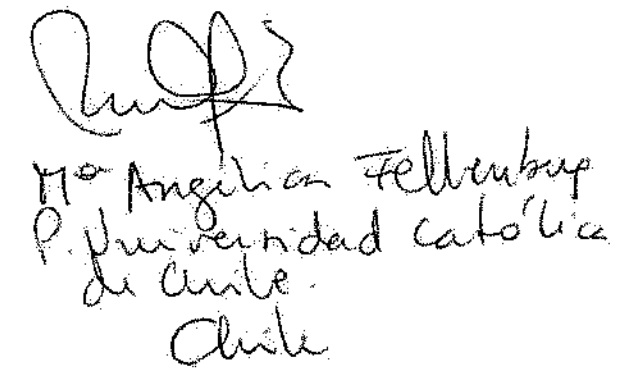 Mª Angélica Fellenberg
P. Universidad Católica
de Chile.
Chile